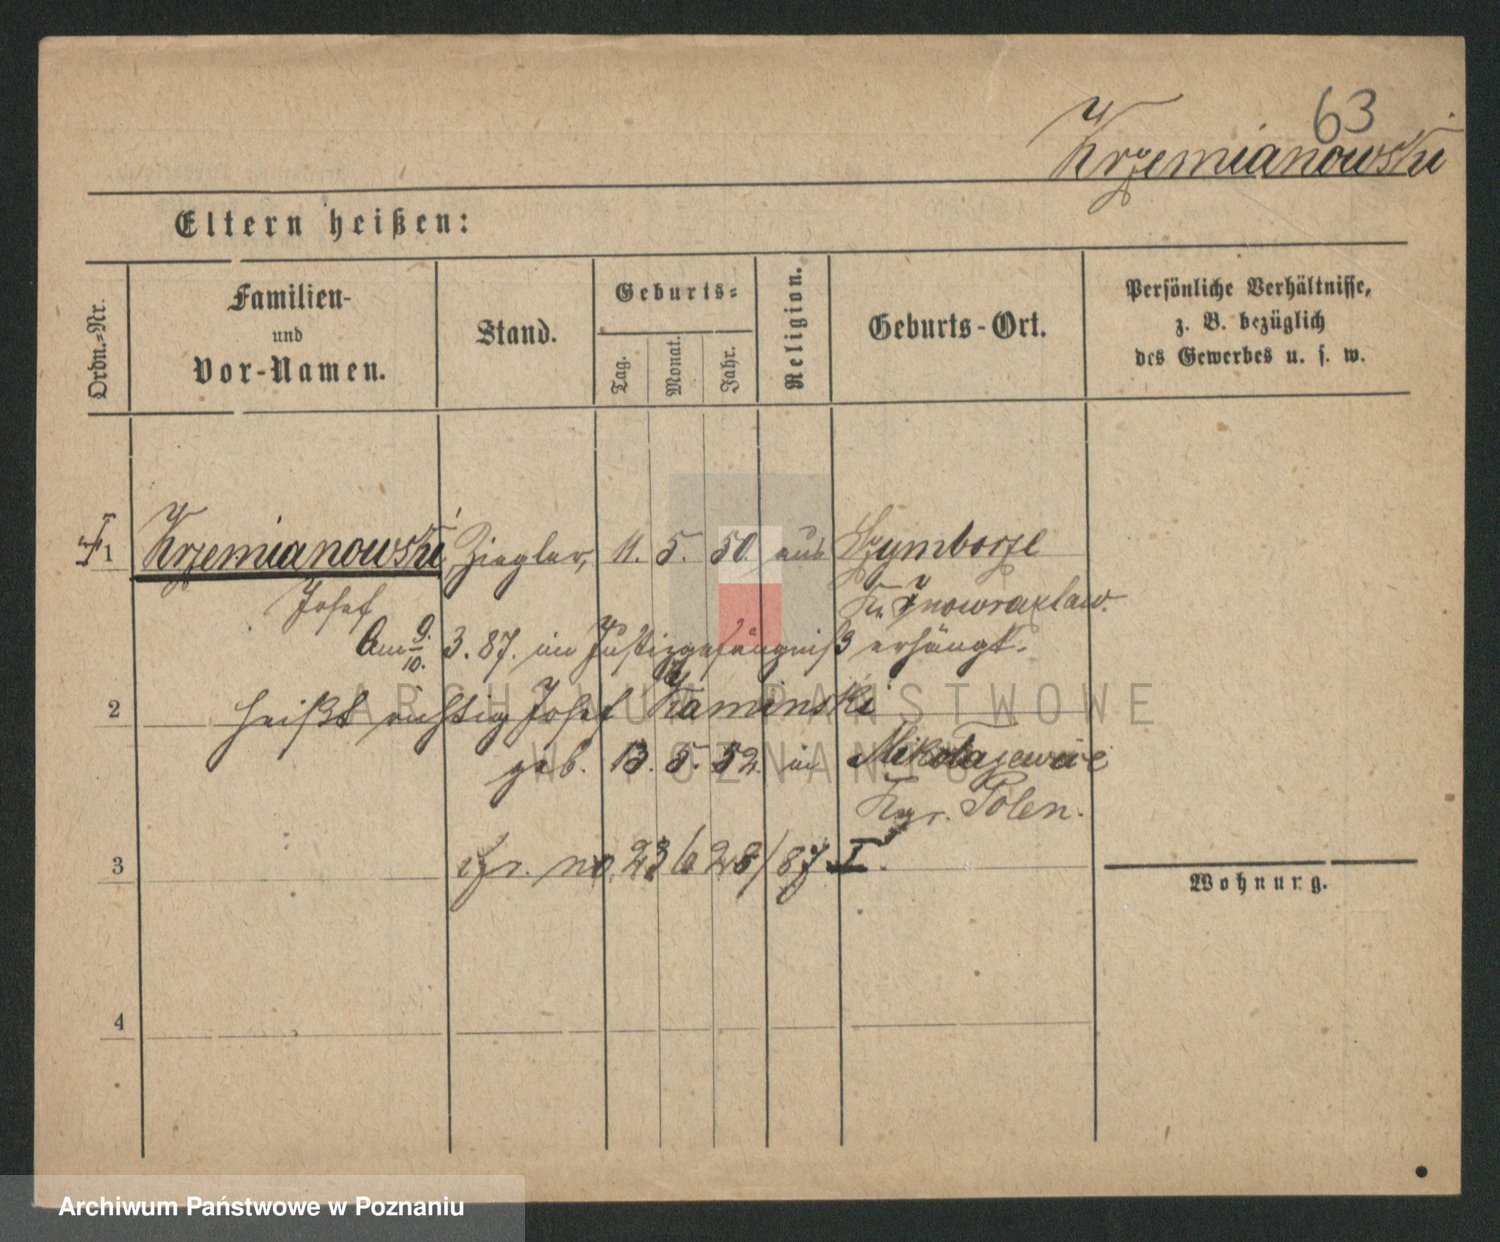 63
Krzemianowski
Eltern heißen:
Ordn.-Nr.
Familien-
und
Vor-Namen.
Stand.
Geburts-
Tag.
Monat.
Jahr.
Religion.
Geburts-Ort.
Persönliche Verhältnisse,
z. B. bezüglich
des Gewerbes u. s. w.
1 Krzemianowski Ziegler, 11. 5. 50. aus Szymborze
Josef Kr. Inowrazlaw.
Am 9./10. 3. 87. im Justizgefängniß erhängt.
2 heißt richtig Josef Kaminski
geb. 13. 5. 52. in Mikolajewice
Kgr. Polen.
3 cfr. no. 23628/87 I.
Wohnung.
4
ARCHIWUM PAŃSTWOWE
W POZNANIU
Archiwum Państwowe w Poznaniu